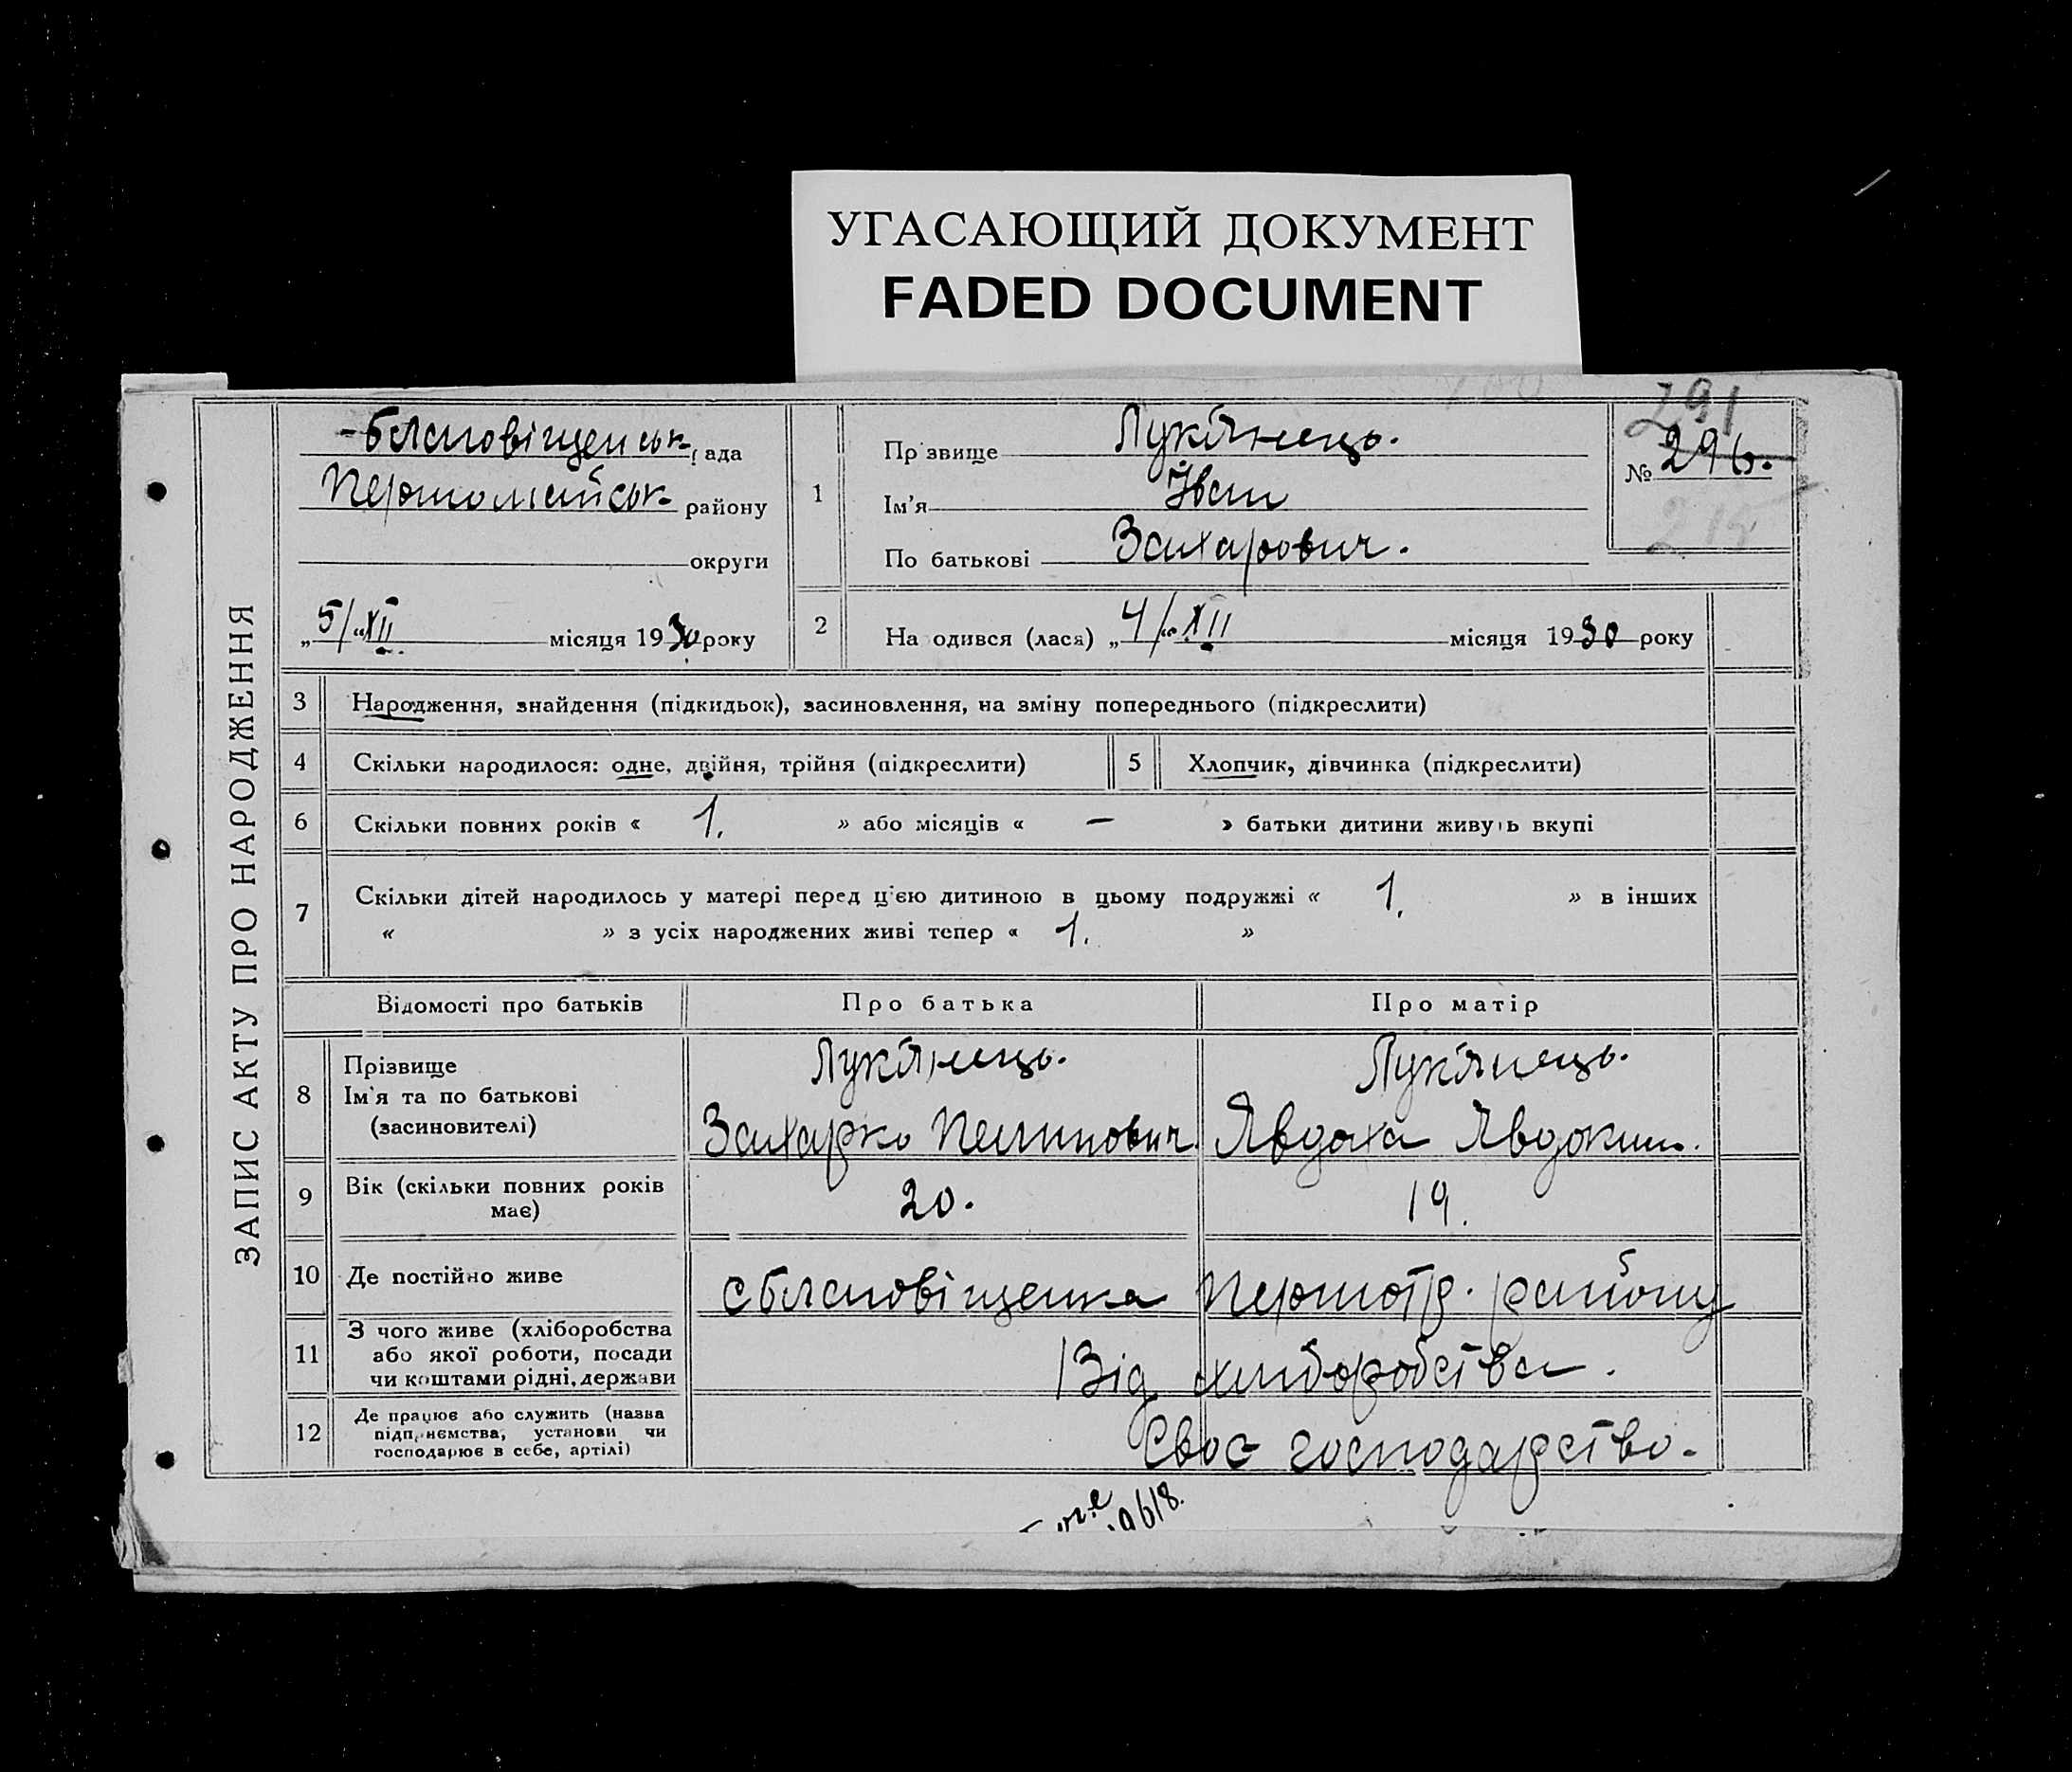 УГАСАЮЩИЙ ДОКУМЕНТ
FADED DOCUMENT
ЗАПИС АКТУ ПРО НАРОДЖЕННЯ
291
Благовіщенськ рада
Першомайськ району
округи
„5/„XII місяця 1930 року
1
Прізвище Лукʼянець.
Ім'я Іван
По батькові Захарович.
№ 296.
215
2 На одився (лася) „4/„XII місяця 1930 року
3 Народження, знайдення (підкидьок), засиновлення, на зміну попереднього (підкреслити)
4 Скільки народилося: одне, двійня, трійня (підкреслити) 5 Хлопчик, дівчинка (підкреслити)
6 Скільки повних років « 1. » або місяців « — » батьки дитини живуть вкупі
7 Скільки дітей народилось у матері перед цією дитиною в цьому подружжі « 1. » в інших
« » з усіх народжених живі тепер « 1. »
Відомості про батьків Про батька Про матір
8 Прізвище Лукʼянець. Лукʼянець.
Ім'я та по батькові Захарко Явдоха Явдоким.
(засиновителі)
9 Вік (скільки повних років має) 20. 19.
10 Де постійно живе с Благовіщенка району
11 З чого живе (хліборобства Від хліборобства.
або якої роботи, посади
чи коштами рідні, держави
12 Де працює або служить (назва Своє господарство.
підприємства, установи чи
господарює в себе, артілі)